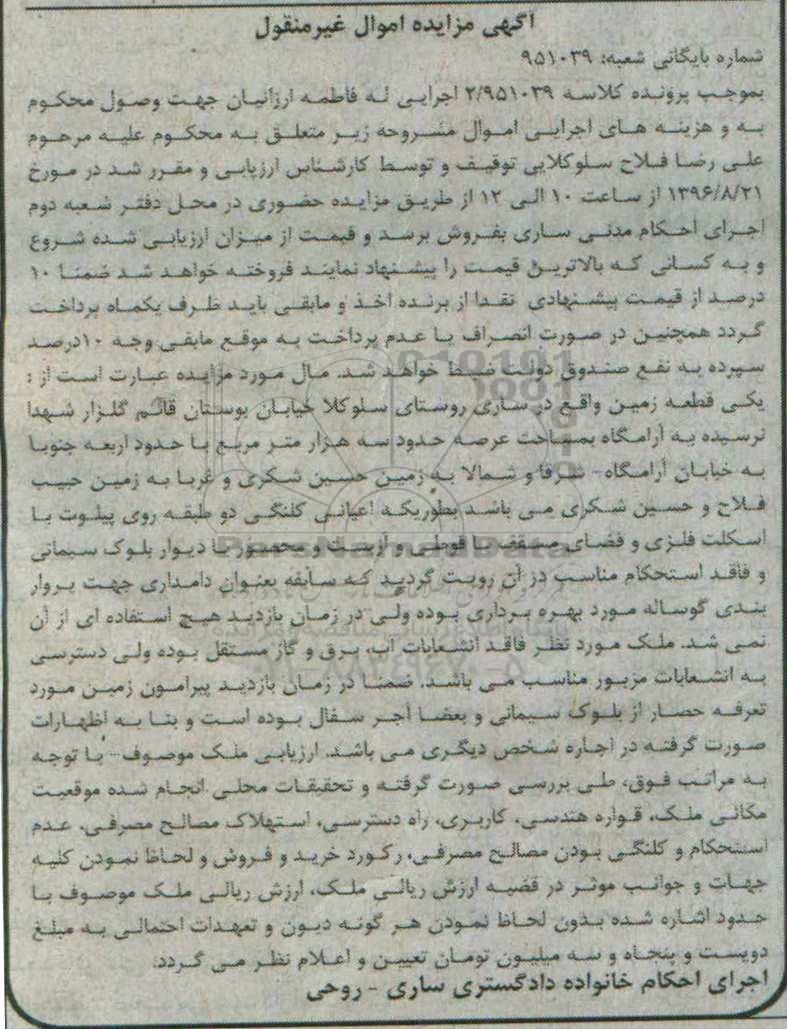 آگهی مزایده اموال غیرمنقول
شماره بایگانی شعبه: ۹۵۱۰۳۹
بموجب پرونده کلاسه ۲/۹۵۱۰۳۹ اجرایی له فاطمه ارزانیان جهت وصول محکوم
به و هزینه های اجرایی اموال مشروحه زیر متعلق به محکوم علیه مرحوم
علی رضا فلاح سلوکلایی توقیف و توسط کارشناس ارزیابی و مقرر شد در مورخ
۱۳۹۶/۸/۲۱ از ساعت ۱۰ الی ۱۲ از طریق مزایده حضوری در محل دفتر شعبه دوم
اجرای احکام مدنی ساری بفروش برسد و قیمت از میزان ارزیابی شده شروع
و به کسانی که بالاترین قیمت را پیشنهاد نمایند فروخته خواهد شد ضمنا ۱۰
درصد از قیمت پیشنهادی نقدا از برنده اخذ و مابقی باید ظرف یکماه پرداخت
گردد همچنین در صورت انصراف یا عدم پرداخت به موقع مابقی وجه ۱۰درصد
سپرده به نفع صندوق دولت ضبط خواهد شد. مال مورد مزایده عبارت است از :
یکی قطعه زمین واقع در ساری روستای سلوکلا خیابان بوستان قائم گلزار شهدا
نرسیده به آرامگاه بمساحت عرصه حدود سه هزار متر مربع با حدود اربعه جنوبا
به خیابان آرامگاه- شرقا و شمالا به زمین حسین شکری و غربا به زمین حبیب
فلاح و حسین شکری می باشد بطوریکه اعیانی کلنگی دو طبقه روی پیلوت با
اسکلت فلزی و فضای مسقف با قوطی و ازبست و محصور با دیوار بلوک سیمانی
و فاقد استحکام مناسب در آن رویت گردید که سابقه بعنوان دامداری جهت پروار
بندی گوساله مورد بهره برداری بوده ولی در زمان بازدید هیچ استفاده ای از آن
نمی شد. ملک مورد نظر فاقد انشعابات آب، برق و گاز مستقل بوده ولی دسترسی
به انشعابات مزبور مناسب می باشد. ضمنا در زمان بازدید پیرامون زمین مورد
تعرفه حصار از بلوک سیمانی و بعضا آجر سفال بوده است و بنا به اظهارات
صورت گرفته در اجاره شخص دیگری می باشد. ارزیابی ملک موصوف- با توجه
به مراتب فوق، طی بررسی صورت گرفته و تحقیقات محلی انجام شده موقعیت
مکانی ملک، قواره هندسی، کاربری، راه دسترسی، استهلاک مصالح مصرفی، عدم
استحکام و کلنگی بودن مصالح مصرفی، رکورد خرید و فروش و لحاظ نمودن کلیه
جهات و جوانب موثر در قضیه ارزش ریالی ملک، ارزش ریالی ملک موصوف با
حدود اشاره شده بدون لحاظ نمودن هر گونه دیون و تعهدات احتمالی به مبلغ
دویست و پنجاه و سه میلیون تومان تعیین و اعلام نظر می گردد.
اجرای احکام خانواده دادگستری ساری - روحی
ParsNamadData